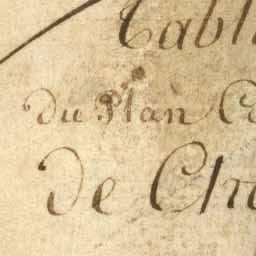 Tabl
du Plan Ca
de Ch